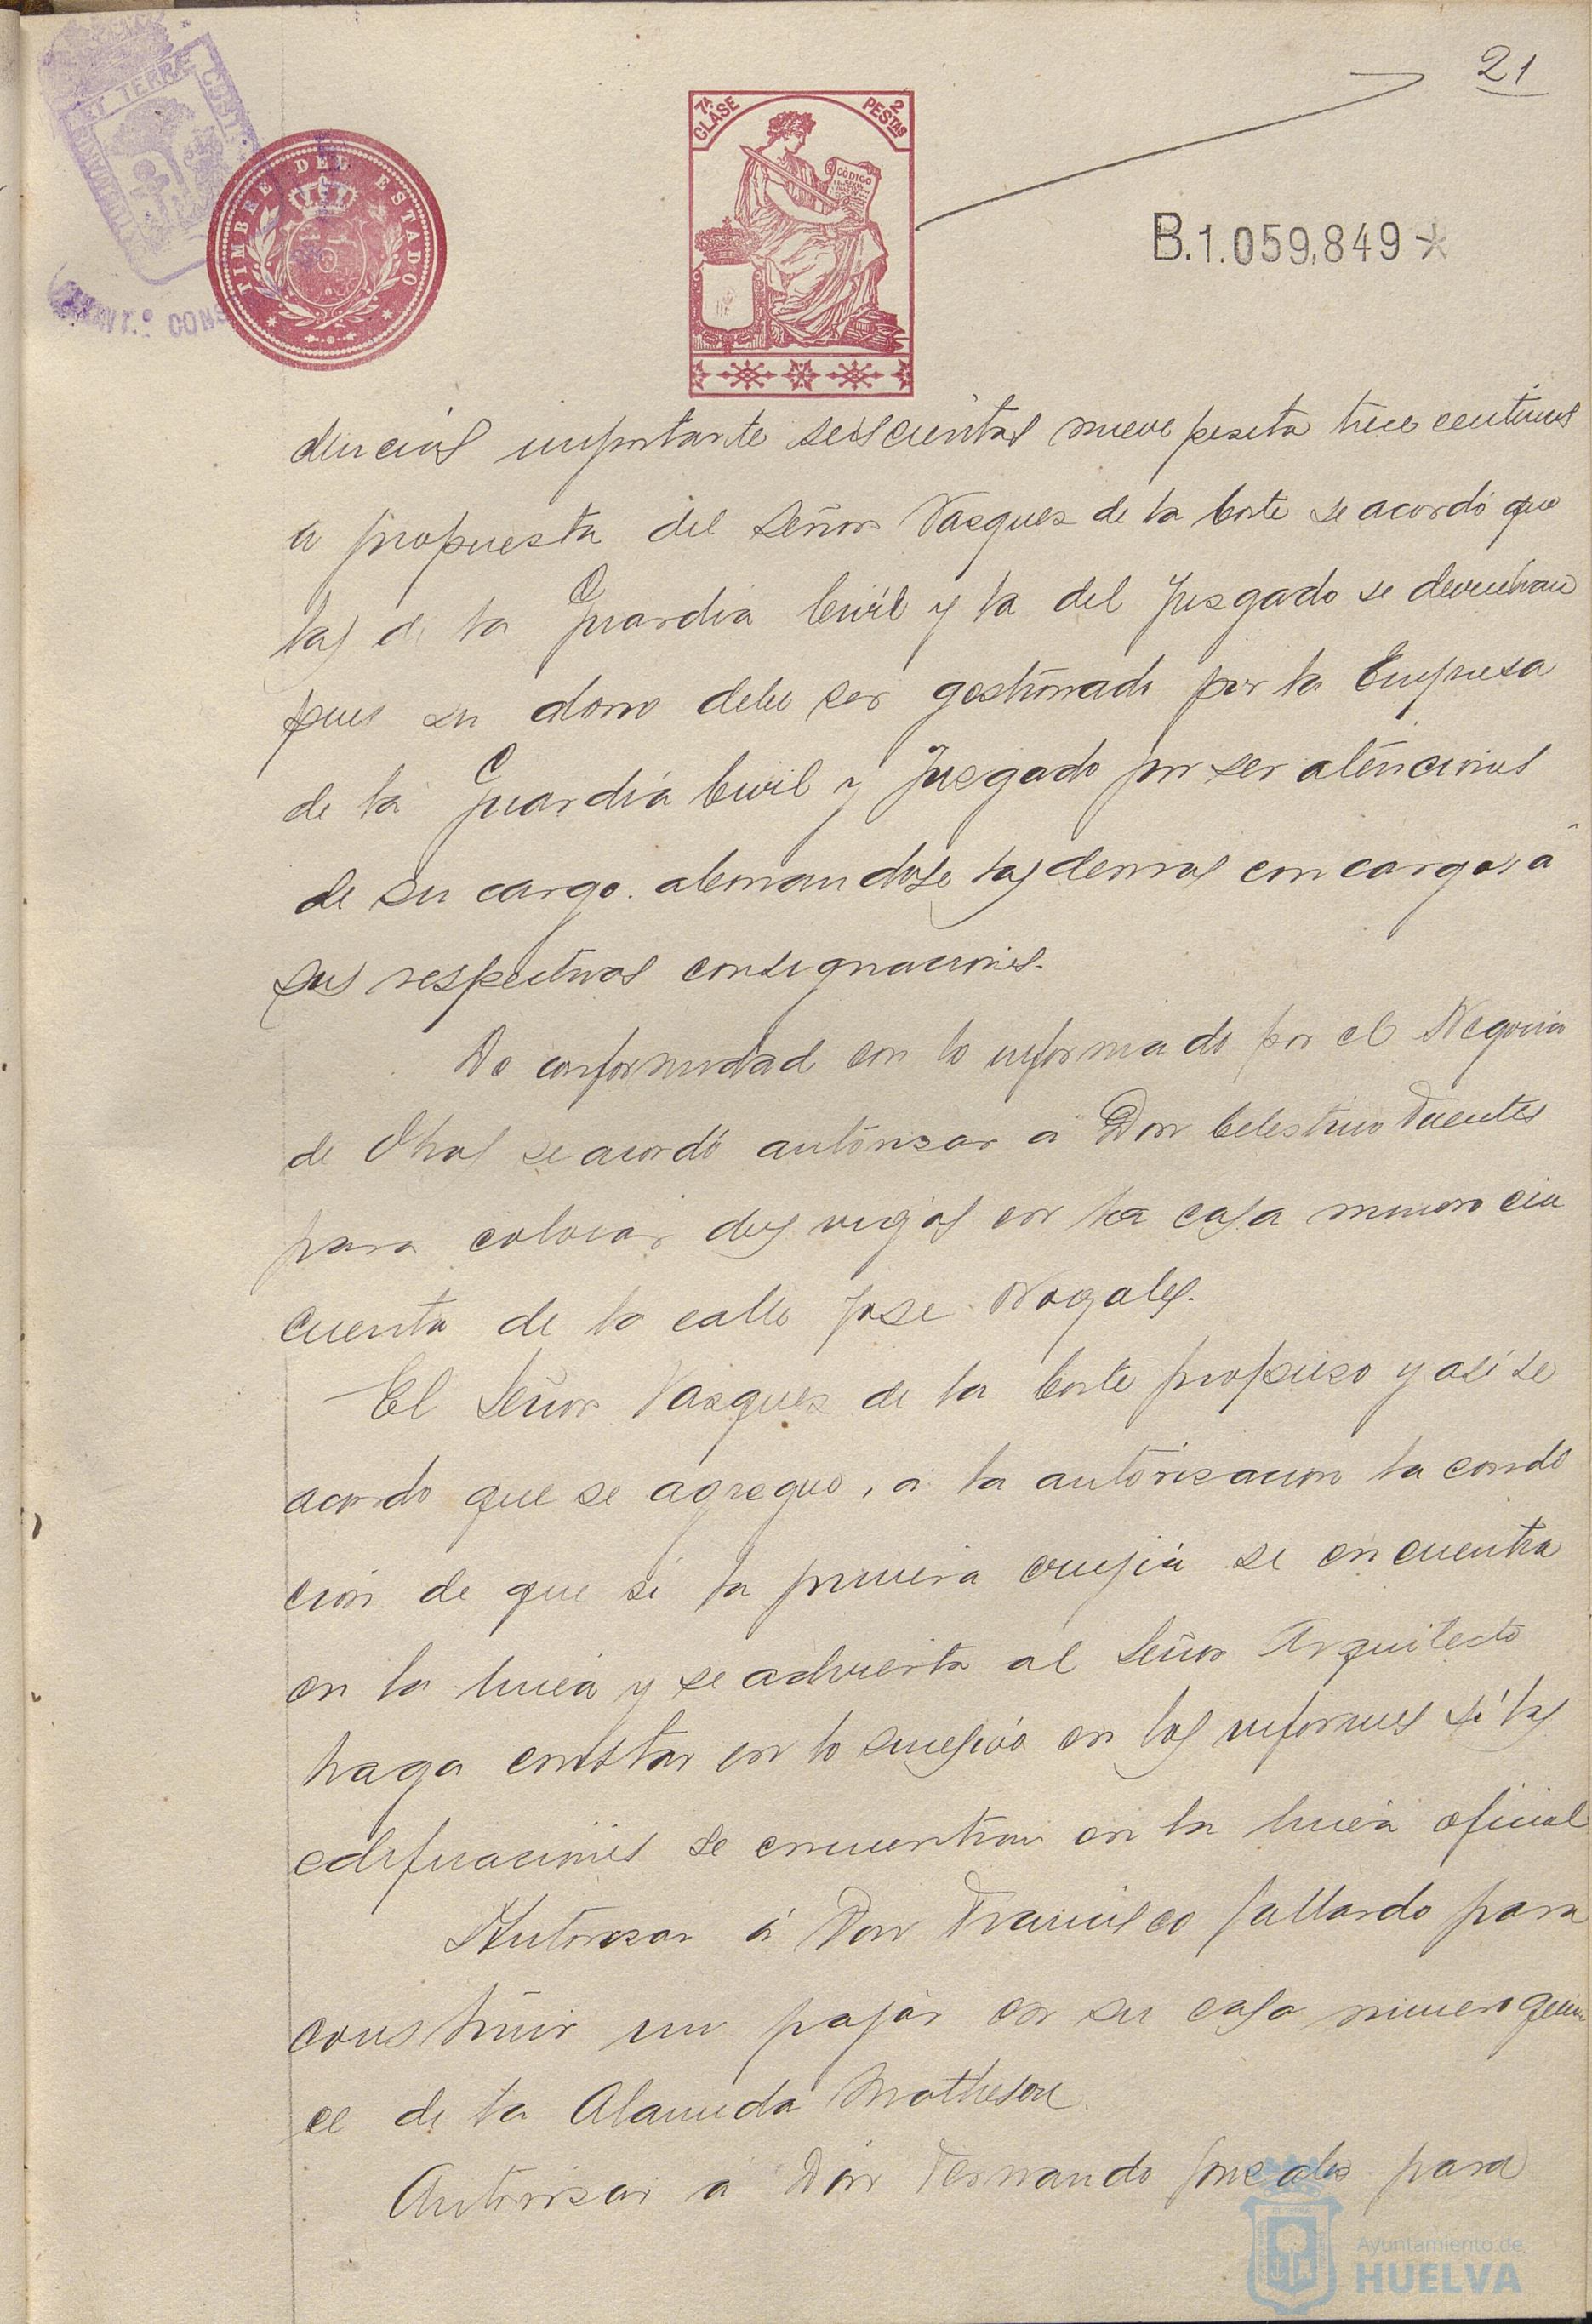 21
7ª CLASE
2 PESTAS
CÓDIGO
TIMBRE DEL ESTADO
B.1.059,849*
dencias importante seiscientas nueve peseta trece centimos
a propuesta del Señor Vazquez de la Corte se acordó que
las de la Guardia Civil y la del Juzgado se devuelvan
pues su abono debe ser gestionado por la Empresa
de la Guardia Civil y Juzgado por ser atenciones
de su cargo. abonandose las demas con cargo á
sus respectivas consignaciones.
De conformidad con lo informado por el Negocia
de Obras se acordó autorizar a Don Celestino Fuentes
para colocar dos vigas en la casa numero cin
cuenta de la calle Jose Nogales.
El Señor Vazquez de la Corte propuso y asi se
acordo que se agregue, a la autorizacion la condi
cion de que si la primera crujia se encuentra
en la linea y se advierta al Señor Arquitecto
haga constar en lo sucesivo en los informes si las
edificaciones se encuentran en la linea oficial
Autorizar á Don Francisco Gallardo para
construir un pajar en su casa numero quin
ce de la Alameda Matheson.
Autorizar a Don Fernando Gonzalez para
Ayuntamiento de
HUELVA